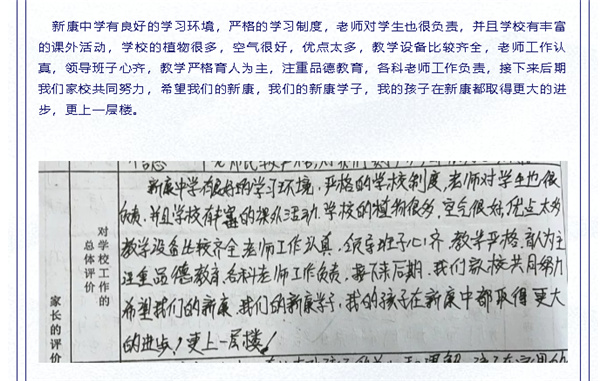 新康中学有良好的学习环境，严格的学习制度，老师对学生也很负责，并且学校有丰富
的课外活动，学校的植物很多，空气很好，优点太多，教学设备比较齐全，老师工作认
真，领导班子心齐，教学严格育人为主，注重品德教育，各科老师工作负责，接下来后期
我们家校共同努力，希望我们的新康，我们的新康学子，我的孩子在新康都取得更大的进
步，更上一层楼。
新康中学有良好的学习环境，严格的学校制度，老师对学生也很
负责，并且学校有丰富的课外活动，学校的植物很多，空气很好，优点太多
教学设备比较齐全，老师工作认真，领导班子心齐，教学严格，育人为主
注重品德教育，各科老师工作负责，接下来后期，我们家校共同努力
希望我们的新康，我们的新康学子，我的孩子在新康中都取得更大
的进步！更上一层楼！
对学校工作的
总体评价
家长的评价